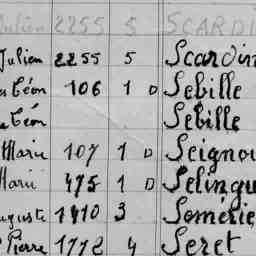 Julien 2255 5 SCARDI
Julien 2255 5 Scardin
Léon 106 1 D Sebille
Léon Sebille
Marie 107 1 D Seignou
Marie 475 1 D Selingu
Auguste 1410 3 Somérie
Pierre 1772 4 Seret